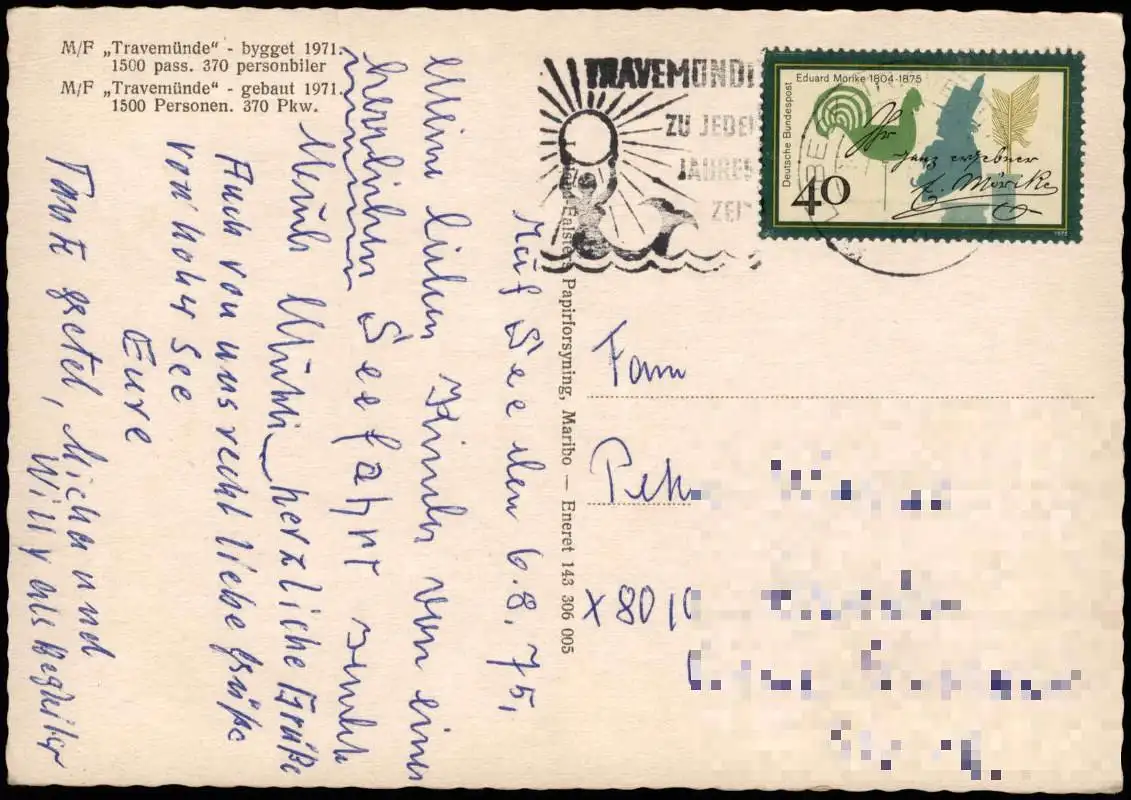 M/F „Travemünde“ - bygget 1971.
1500 pass. 370 personbiler
M/F „Travemünde“ - gebaut 1971.
1500 Personen. 370 Pkw.
TRAVEMÜNDE
ZU JEDER
JAHRES
ZEIT
Deutsche Bundespost
Eduard Mörike 1804-1875
Ihr
ganz ergebner
E. Mörike
40
1975
Papirforsyning, Maribo — Eneret 143 306 005
Auf See den 6.8.75,
Meine lieben Kinder von einer
herrlichen Seefahrt sendet
herzliche Grüße
Auch von uns recht liebe Grüße
von hoher See
Eure
Tante Gretel, Micha und
Willy als Begleiter
Fam
X 801